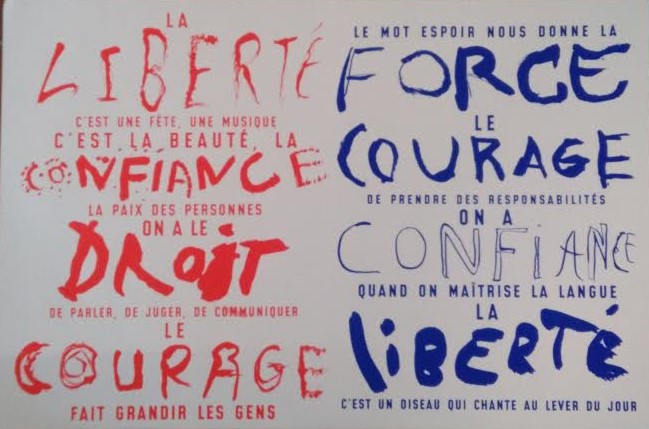 LA
LIBERTÉ
C'EST UNE FÊTE, UNE MUSIQUE
C'EST LA BEAUTÉ, LA
CONFIANCE
LA PAIX DES PERSONNES
ON A LE
DROIT
DE PARLER, DE JUGER, DE COMMUNIQUER
LE
COURAGE
FAIT GRANDIR LES GENS
LE MOT ESPOIR NOUS DONNE LA
FORCE
LE
COURAGE
DE PRENDRE DES RESPONSABILITÉS
ON A
CONFIANCE
QUAND ON MAÎTRISE LA LANGUE
LA
liBERTÉ
C'EST UN OISEAU QUI CHANTE AU LEVER DU JOUR